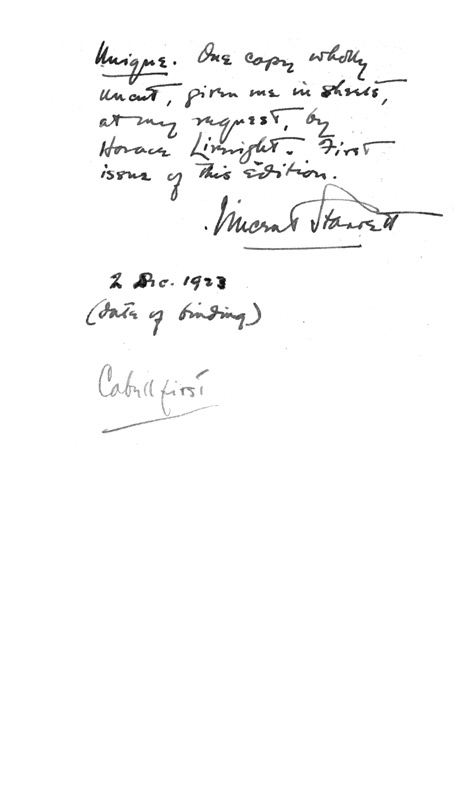 Unique. One copy wholly
uncut, given me in sheets,
at my request, by
Horace Liveright. First
issue of this edition.
Vincent Starrett
2 Dec. 1923
(date of binding)
Cabell first